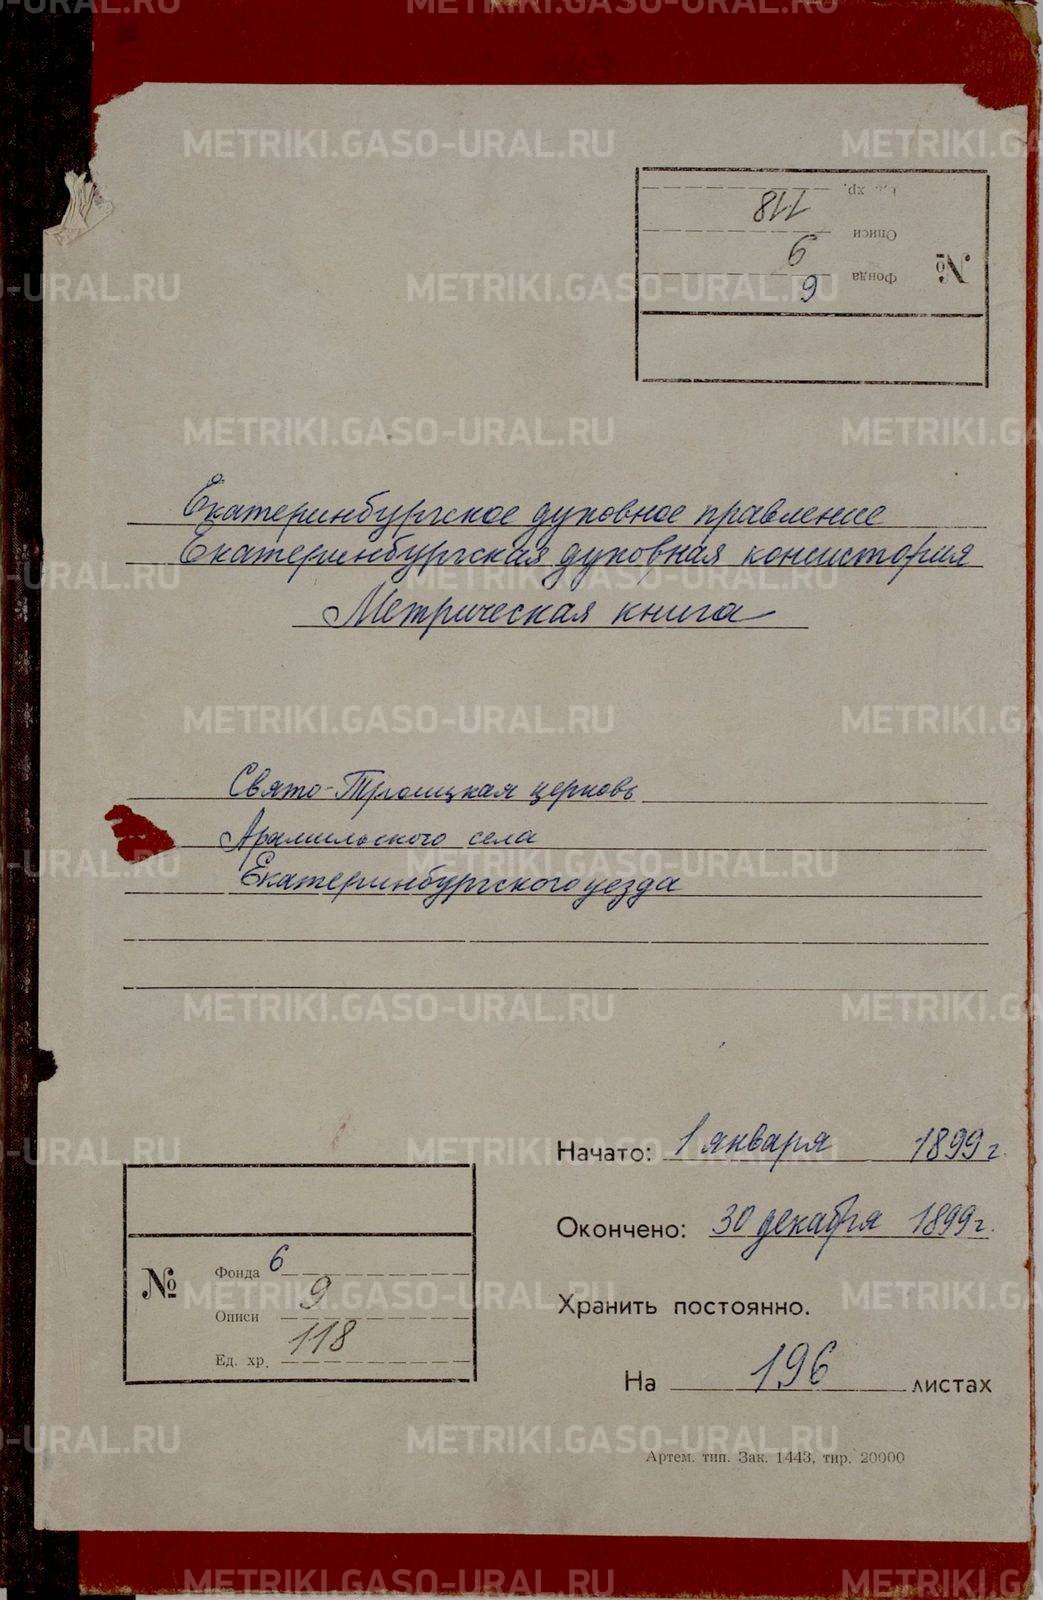 Ед. хр. 118
Описи 9
№ Фонда 6
Екатеринбургское духовное правление
Екатеринбургская духовная консистория
Метрическая книга
Свято-Троицкая церковь
Арамильского села
Екатеринбургского уезда
Начато: 1 января 1899 г.
Окончено: 30 декабря 1899 г.
Хранить постоянно.
На 196 листах
№ Фонда 6
Описи 9
Ед. хр. 118
Артем. тип. Зак. 1443, тир. 20000
METRIKI.GASO-URAL.RU